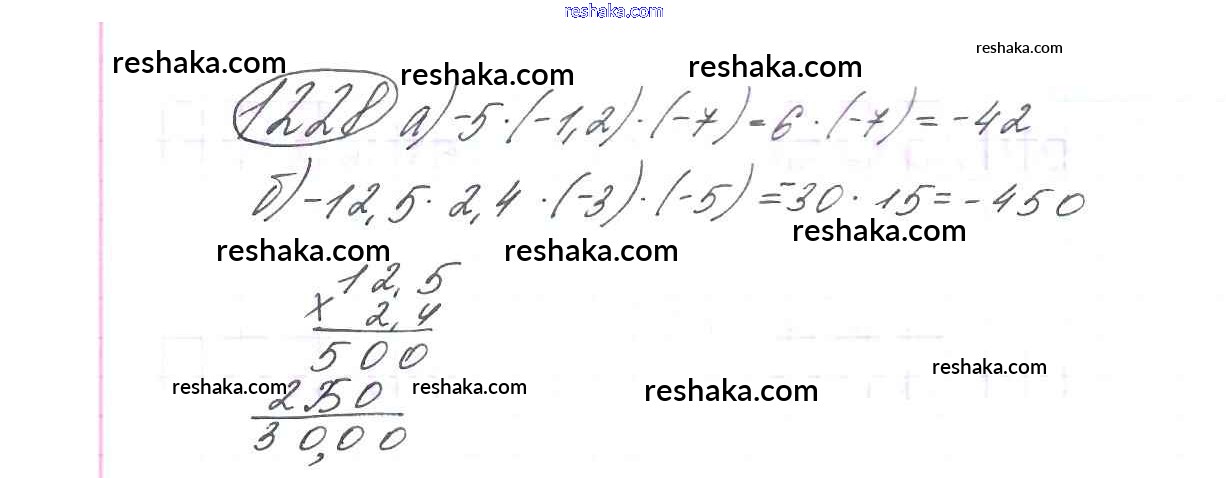 reshaka.com
reshaka.com reshaka.com reshaka.com reshaka.com
1228 а) -5·(-1,2)·(-7)=6·(-7)=-42
б) -12,5·2,4·(-3)·(-5)=-30·15=-450
reshaka.com reshaka.com reshaka.com
12,5
× 2,4
500
reshaka.com 250 reshaka.com reshaka.com reshaka.com
30,00